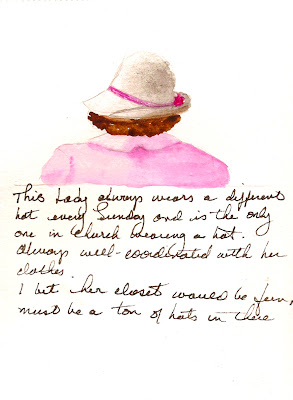 This Lady always wears a different
hat every Sunday and is the only
one in Church wearing a hat.
Always well-coordinated with her
clothes.
I bet her closet would be fun,
must be a ton of hats in there